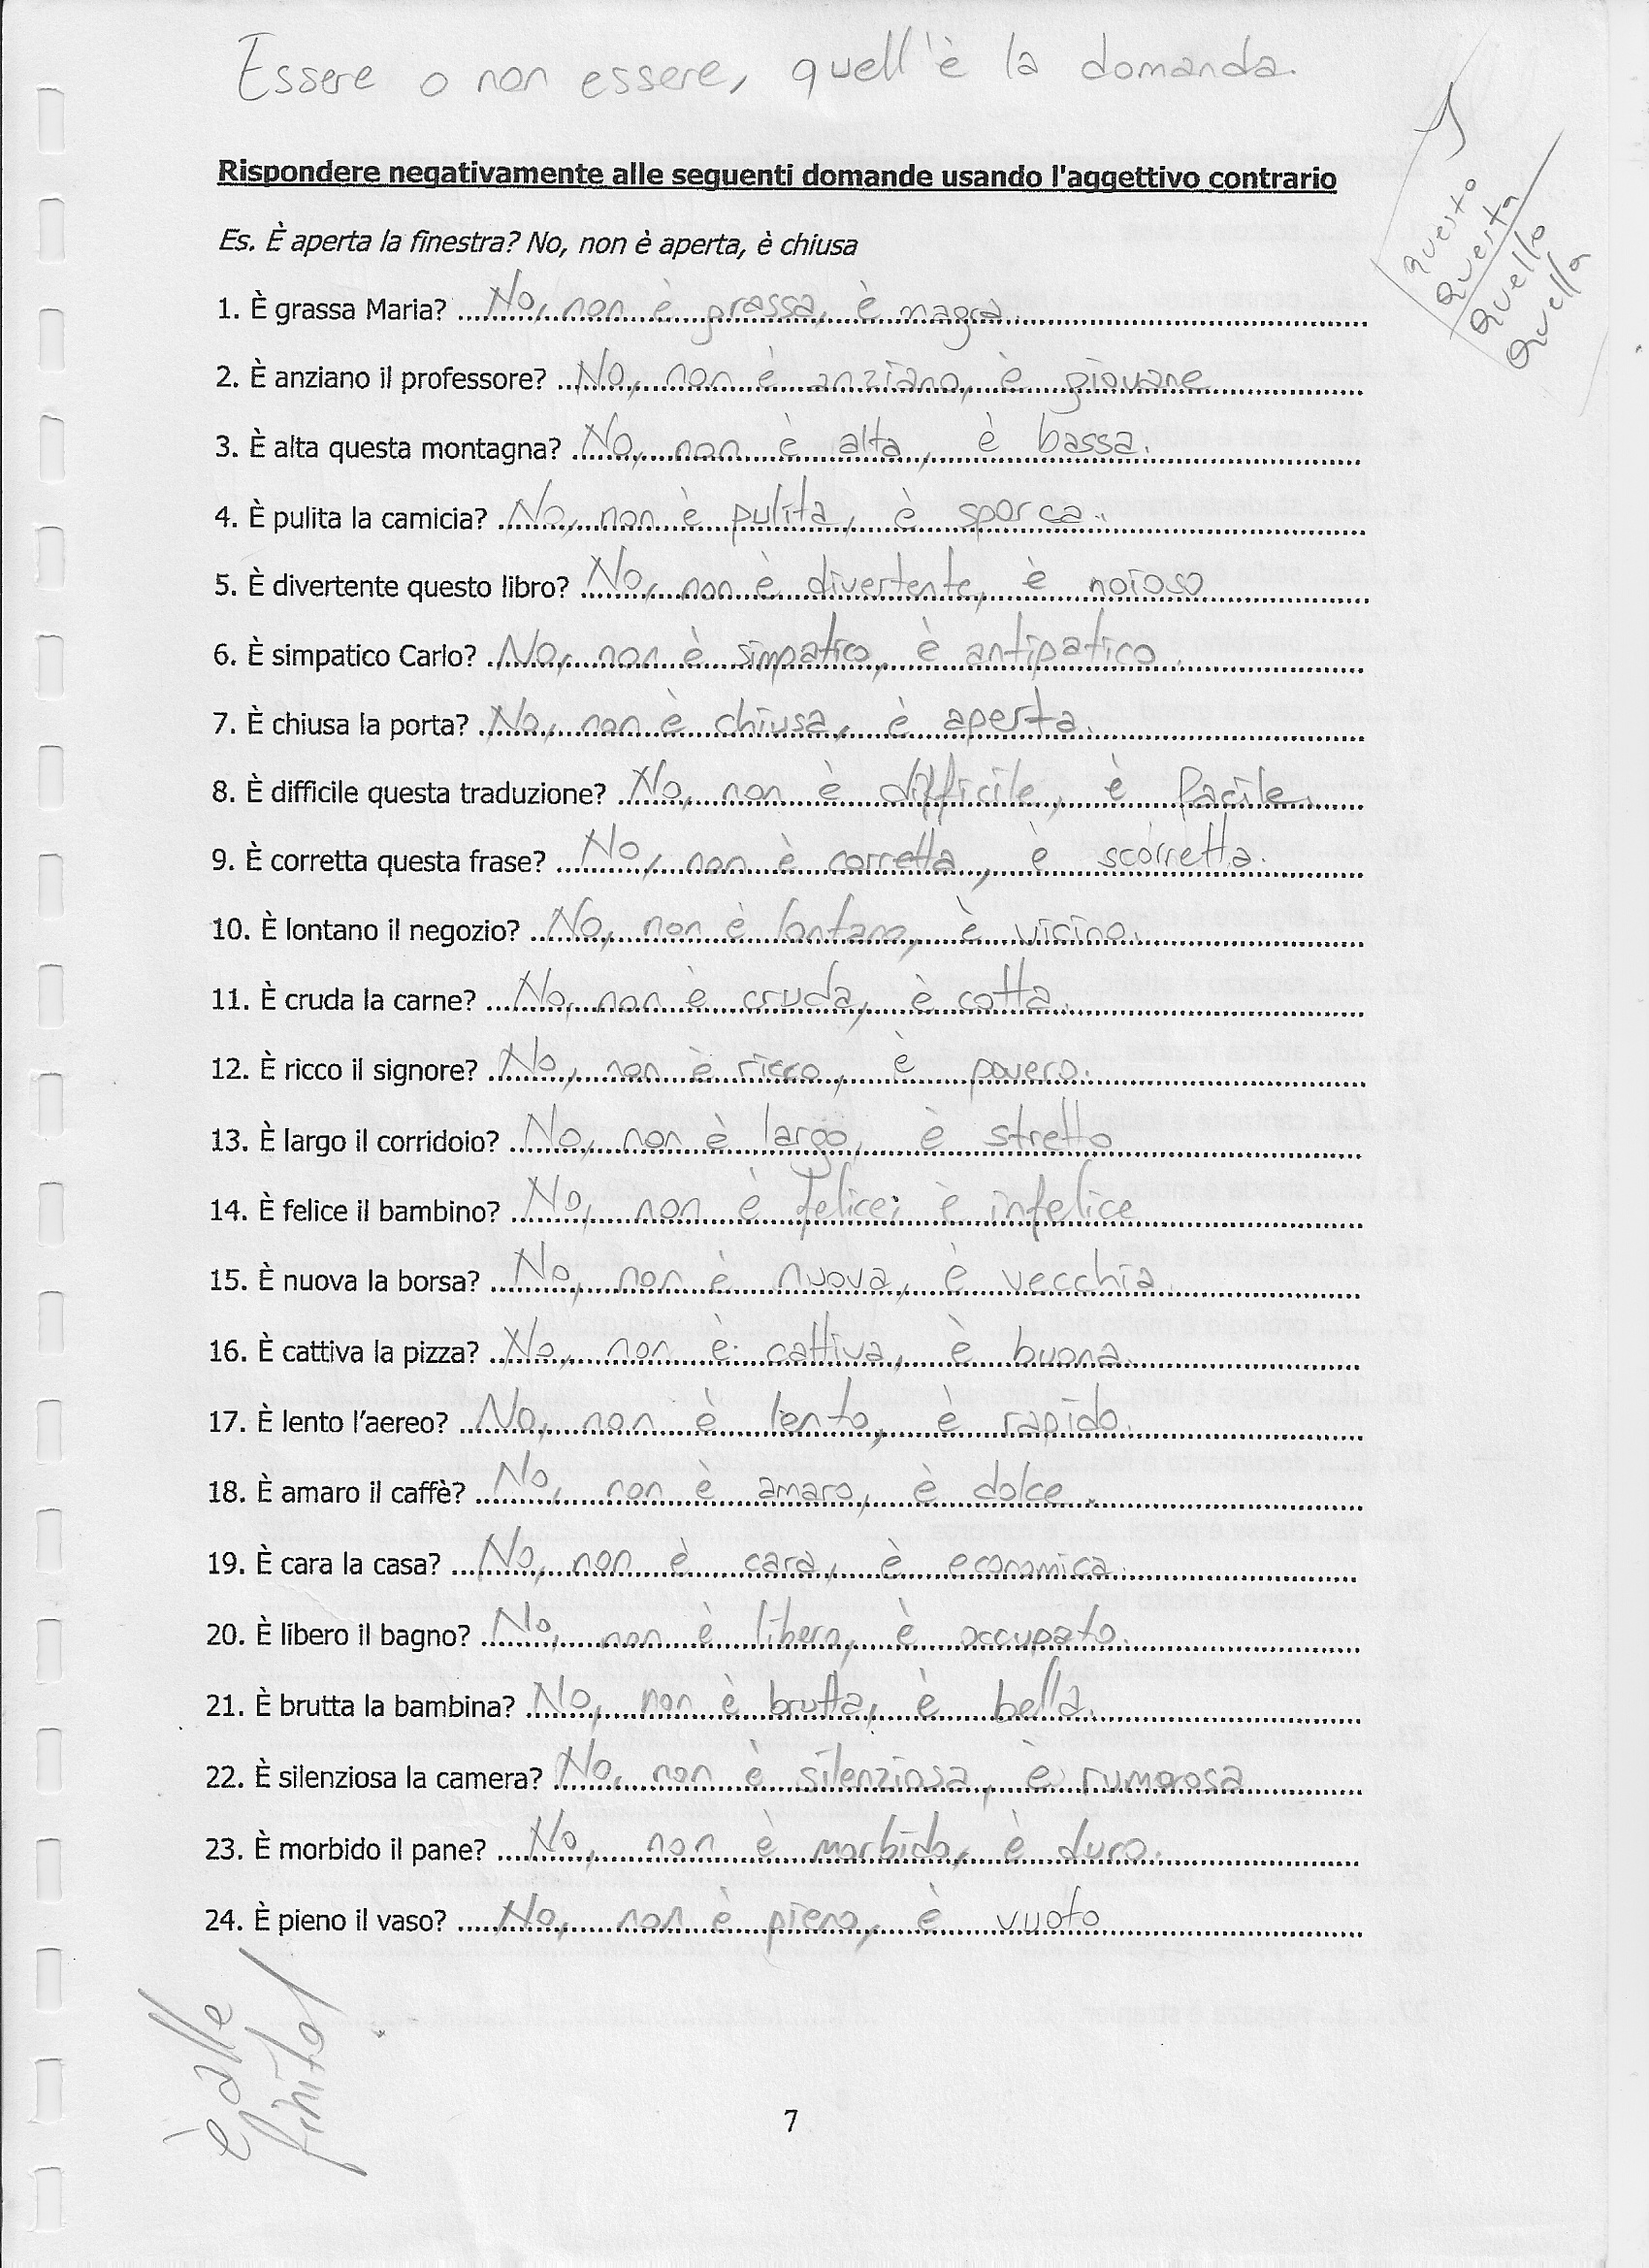 Essere o non essere, quell'è la domanda.
Rispondere negativamente alle seguenti domande usando l'aggettivo contrario
questo
questa
quello
quella
Es. È aperta la finestra? No, non è aperta, è chiusa
1. È grassa Maria? No, non è grassa, è magra.
2. È anziano il professore? No, non è anziano, è giovane
3. È alta questa montagna? No, non è alta, è bassa.
4. È pulita la camicia? No, non è pulita, è sporca.
5. È divertente questo libro? No, non è divertente, è noioso
6. È simpatico Carlo? No, non è simpatico, è antipatico.
7. È chiusa la porta? No, non è chiusa, è aperta.
8. È difficile questa traduzione? No, non è difficile, è facile.
9. È corretta questa frase? No, non è corretta, è scorretta.
10. È lontano il negozio? No, non è lontano, è vicino.
11. È cruda la carne? No, non è cruda, è cotta.
12. È ricco il signore? No, non è ricco, è povero.
13. È largo il corridoio? No, non è largo, è stretto
14. È felice il bambino? No, non è felice; è infelice
15. È nuova la borsa? No, non è nuova, è vecchia.
16. È cattiva la pizza? No, non è cattiva, è buona.
17. È lento l'aereo? No, non è lento, è rapido.
18. È amaro il caffè? No, non è amaro, è dolce.
19. È cara la casa? No, non è cara, è economica.
20. È libero il bagno? No, non è libero, è occupato.
21. È brutta la bambina? No, non è brutta, è bella.
22. È silenziosa la camera? No, non è silenziosa, è rumorosa
23. È morbido il pane? No, non è morbido, è duro.
24. È pieno il vaso? No, non è pieno, è vuoto
è
finito!
7